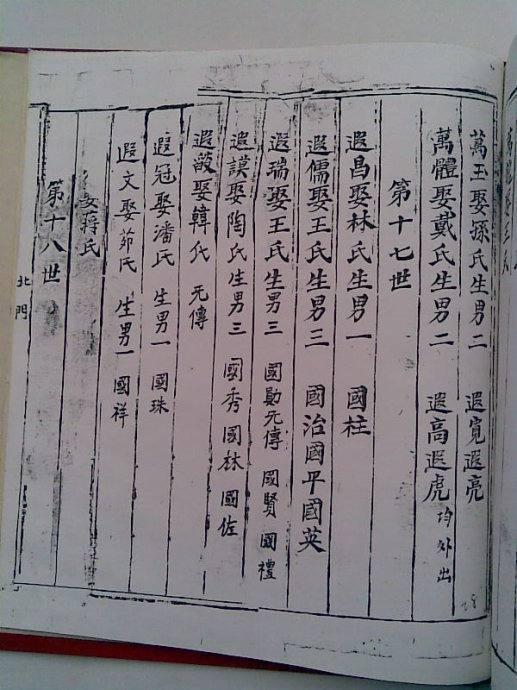 萬玉娶孫氏生男二 遐寬遐亮
萬體娶戴氏生男二 遐高遐虎均外出
第十七世
遐昌娶林氏生男一 國柱
遐儒娶王氏生男三 國治國平國英
遐瑞娶王氏生男三 國勛无傳 國賢 國禮
遐謨娶陶氏生男三 國秀國林國佐
遐啟娶韓氏 无傳
遐冠娶潘氏 生男一 國珠
遐文娶茆氏 生男一 國祥
娶蔣氏
第十八世
北門